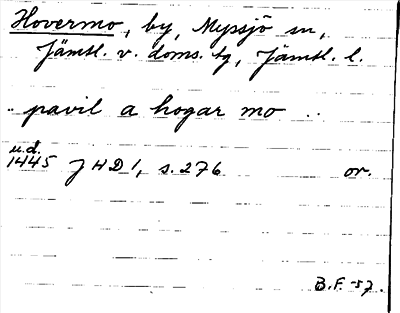 Hovermo, by, Myssjö sn,
Jämtl. v. doms. tg, Jämtl. l.
.. pavil a hogar mo ..
u.d.
1445 JHD 1, s. 276 or.
B.F. -57.